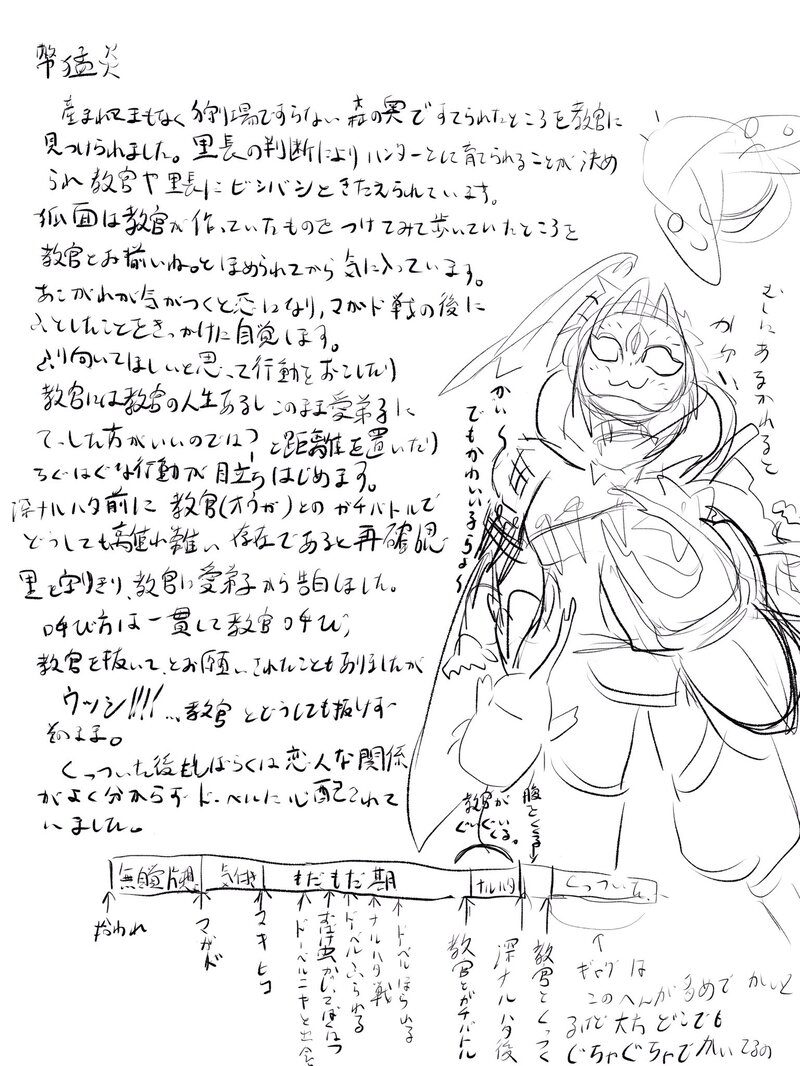 幣猛炎
産まれてまもなく狩り場ですらない森の奥ですてられたところを教官に
見つけられました。里長の判断によりハンターとして育てられることが決め
られ教官や里長にビシバシときたえられています。
狐面は教官が作っていたものをつけてみて歩いていたところを
教官とお揃いね。とほめられてから気に入っています。
あこがれが気がつくと恋になり、マガド戦の後に
ふとしたことをきっかけに自覚します。
ふり向いてほしいと思って行動をおこしたり
教官には教官の人生あるしこのまま愛弟子に
てっした方がいいのでは?と距離を置いたり
ちぐはぐな行動が目立ちはじめます。
深ナルハタ前に教官(オウガ)とのガチバトルで
どうしても離れ難い存在であると再確認
里を守りきり、教官に愛弟子から告白しました。
呼び方は一貫して教官呼び、
教官を抜いて、とお願いされたこともありましたが
ウツシ!!!…教官とどうしても抜けず
そのまま。
くっついた後もしばらくは恋人な関係
がよく分からずドーベルに心配されて
いました。
むしにあるかれると
かゆい
かい〜
でもかわいいからよ〜
教官が
ぐいぐい
くる。
腹をくくる
無自覚片想い
気付き
もだもだ期
ナルハタ
くっついた
拾われ
マガド
ヌキヒコ
ドーベルニキと出会
ドーベルふられる
ナルハタ戦
ドーベルほられる
教官とガチバトル
深ナルハタ後
教官とくっつく
ギャグは
このへんが多めでかいと
るけど大方どこでも
ぐちゃぐちゃでかいてるの